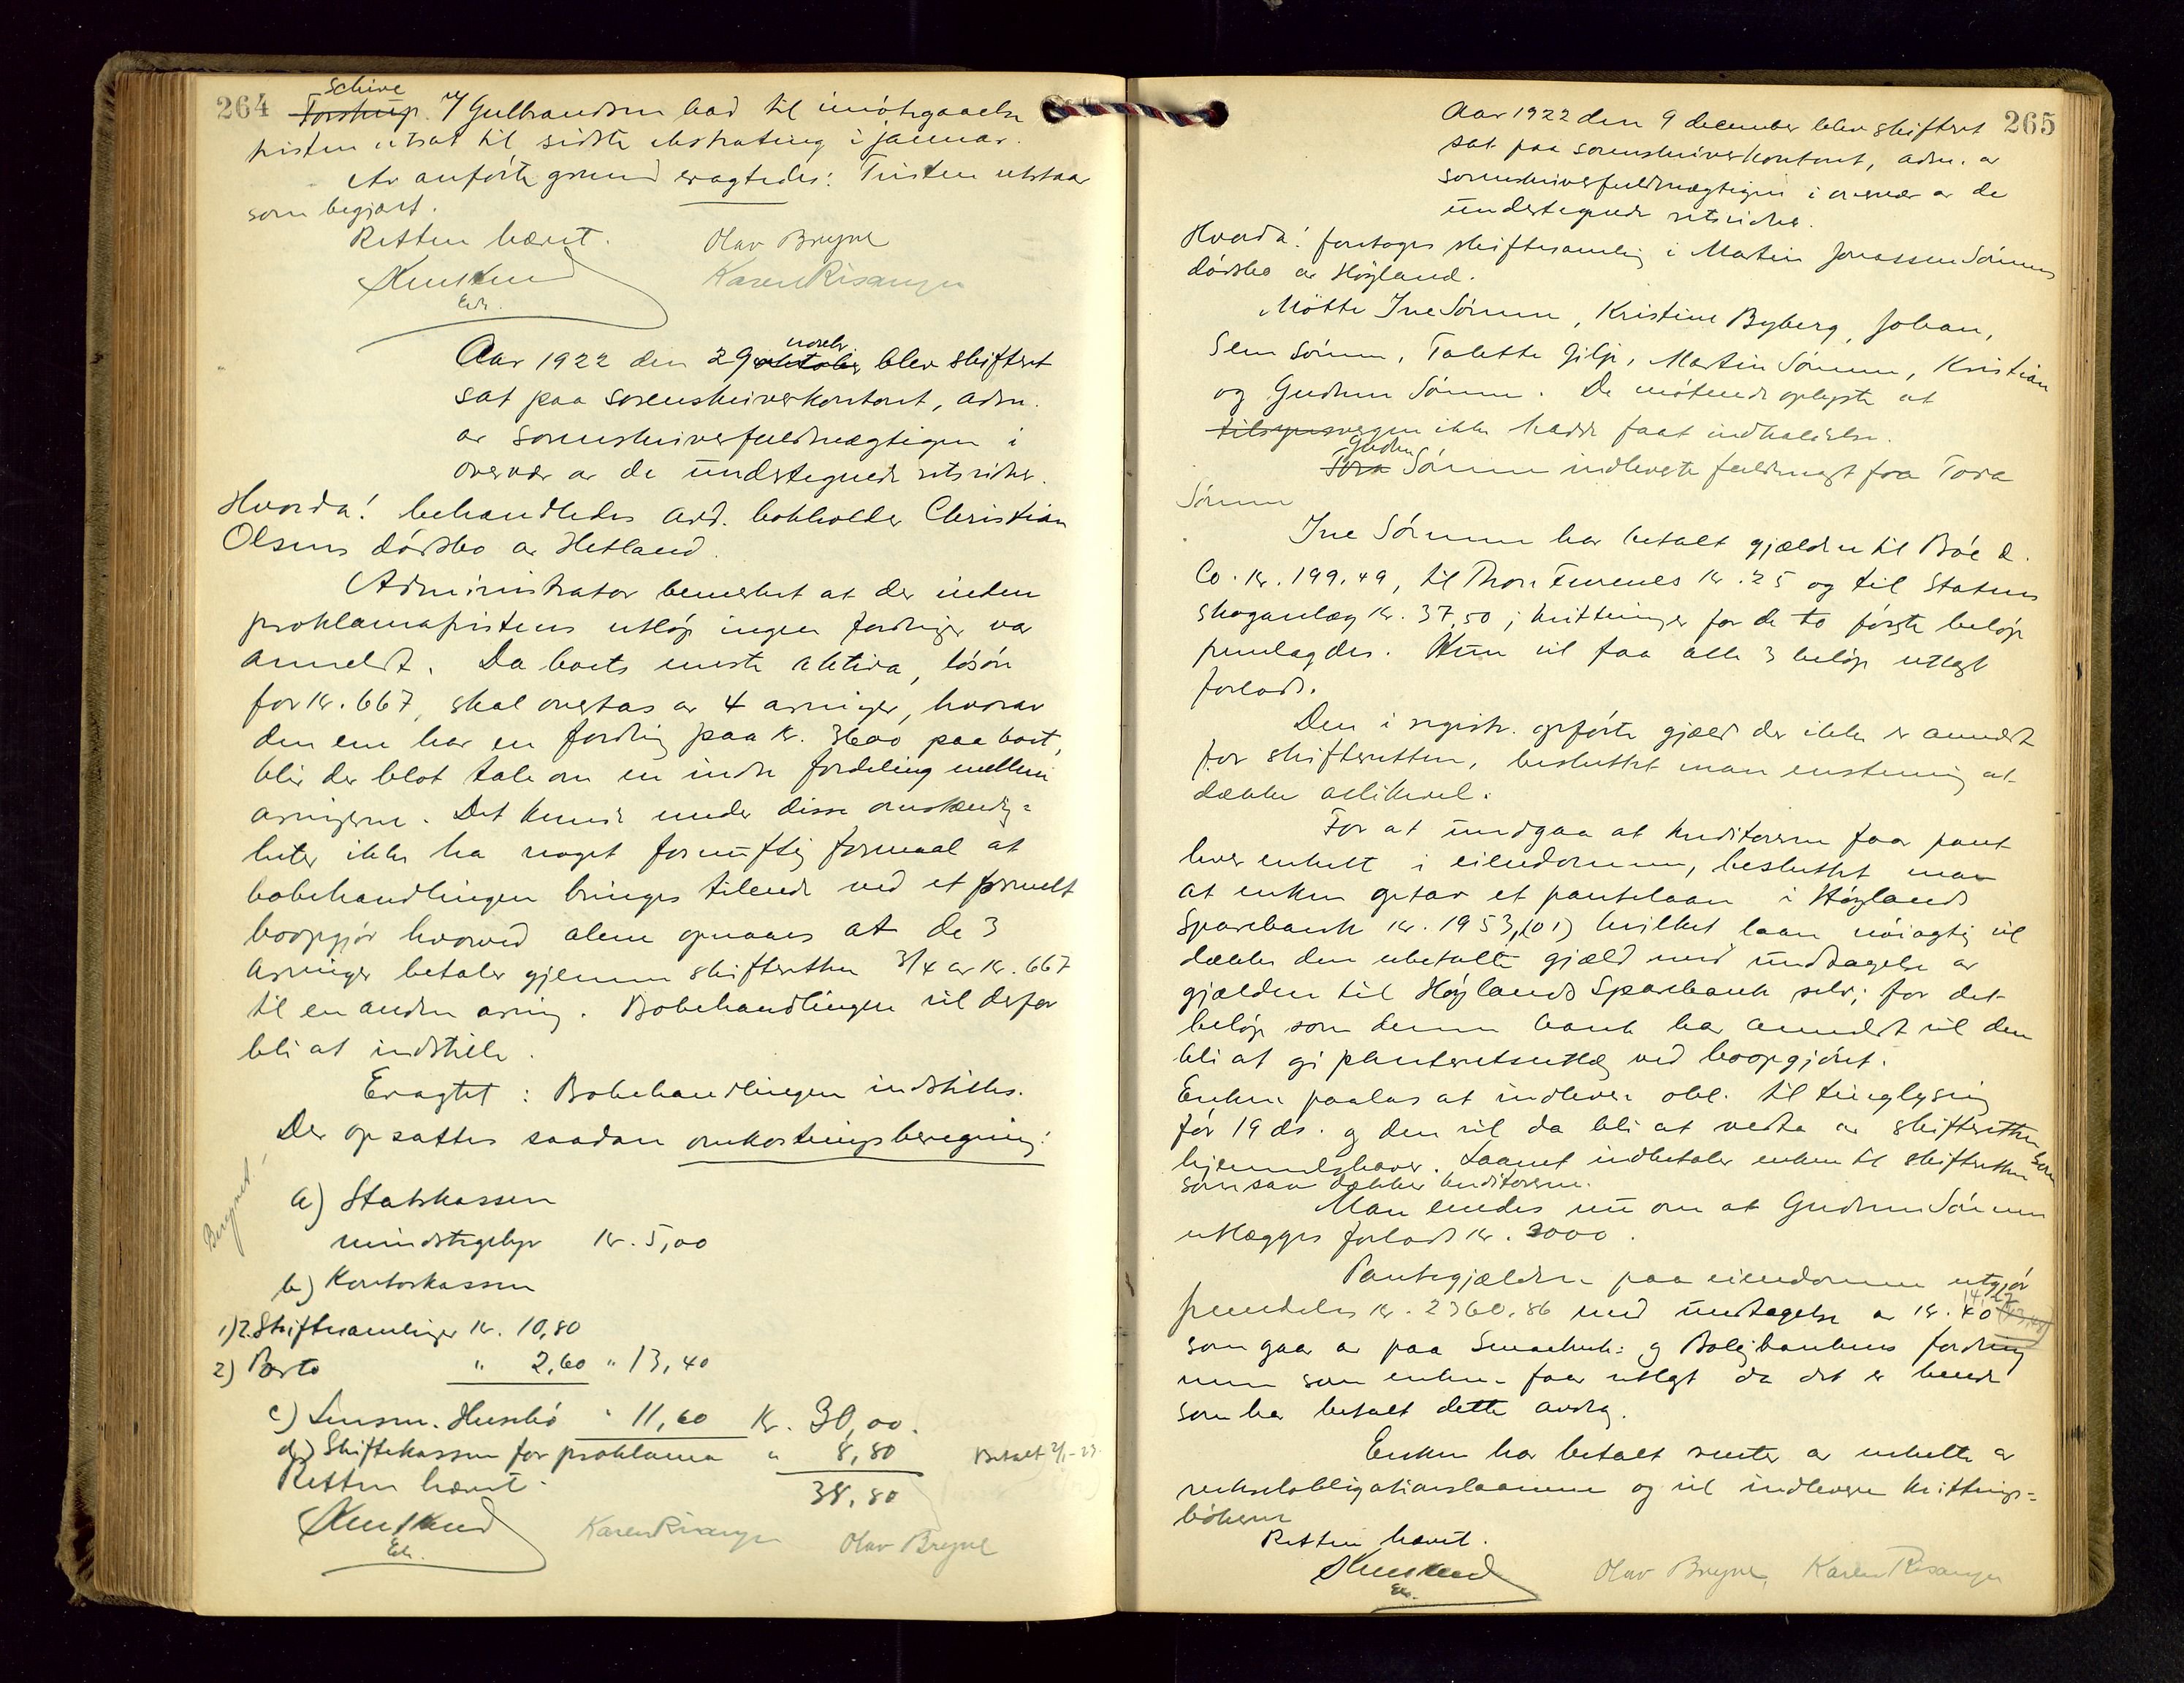 264
Schive
Torstrup. v/ Gulbrandsen bad til imøtegaaelse
fristen utsat til sidste ekstrating i januar.
Av anførte grund eragtedes: Fristen utstaar
som begjært.
Retten hævet. Olav Bryne
Edv. Karen Risanger
novbr.
Aar 1922 den 29 oktober blev skifteret
sat paa sorenskriverkontoret, adm.
av sorenskriverfuldmægtigen i
overvær av de undertegnede retsvidner.
Hvorda! behandledes avd. bokholder Christian
Olsens dødsbo av Hetland.
Administrator bemerket at der inden
proklamafristens utløp ingen fordringer var
anmeldt. Da boets eneste aktiva, løsøre
for kr. 667, skal overtas av 4 arvinger, hvorav
den ene har en fordring paa kr. 3600 paa boet,
blir der blot tale om en indre fordeling mellem
arvingerne. Det kunde under disse omstændig=
heter ikke ha noget fornuftig formaal at
bobehandlingen bringes tilende ved et formelt
boopgjør hvorved alene opnaaes at de 3
arvinger betaler gjennem skifteretten 3/4 av kr. 667
til en anden arving. Bobehandlingen vil derfor
bli at indstille.
Eragtet: Bobehandlingen indstilles.
Der opsattes saadan omkostningsberegning:
Beregnet.
a) Statskassen
mindstegebyr kr. 5,00
b) Kontorkassen
1) 2 Skiftesamlinger kr. 10,80
2) Porto " 2,60 " 13,40
c) Lensm. Husebø " 11,60 Kr. 30,00.
d) Skiftekassen for proklama " 8,80 Betalt
Retten hævet. 38,80
Edv. Karen Risanger Olav Bryne
265
Aar 1922 den 9 december blev skifteret
sat paa sorenskriverkontoret, adm. av
sorenskriverfuldmægtigen i overvær av de
undertegnede retsvidner.
Hvorda! foretoges skiftesamling i Martin Jonassen Sømmes
dødsbo av Høyland.
Møtte Ine Sømme, Kristine Byberg, Johan,
Sem Sømme, Talette Gilje, Martin Sømme, Kristian
og Gudrun Sømme. De møtende oplyste at
tilsynsvergen ikke hadde faat indkaldelse.
Gudrun
Tora Sømme indleverte fuldmagt fra Tora
Sømme
Ine Sømme har betalt gjælden til Bøe &
Co. kr. 199,49, til Thor Furenes kr. 25 og til Statens
skoganlæg kr. 37,50; kvitteringer for de to første beløp
fremlagdes. Hun vil faa alle 3 beløp utlagt
forlods.
Den i registr. opførte gjæld der ikke er anmeldt
for skifteretten, besluttet man enstemmig at
dække allikevel.
For at undgaa at kreditorerne faar pant
hver enkelt i eiendommen, besluttet man
at enken optar et pantelaan i Høylands
Sparebank kr. 1953,01) hvilket laan nøiagtig vil
dække den ubetalte gjæld med undtagelse av
gjælden til Høylands Sparebank selv; for det
beløp som denne bank har anmeldt vil den
bli at gi panteretsutlæg ved boopgjøret.
Enken paalas at indlevere obl. til tinglysing
før 19 ds. og den vil da bli at vedta av skifteretten som
hjemmelshaver. Laanet indbetaler enken til skifteretten
som saa dækker kreditorerne.
Man enedes nu om at Gudrun Sømme
utlægges forlods kr. 3000.
Pantegjælden paa eiendommen utgjør
14,22
fremdeles kr. 2360,86 med undtagelse av kr. 40
som gaar av paa Smaabruk= og Boligbankens fordring
men som enken faar utlagt da det er hende
som har betalt dette avdrag.
Enken har betalt renter av enkelte av
vekselobligationslaanene og vil indlevere kvitterings=
bøkerne
Retten hævet.
Edv. Olav Bryne, Karen Risanger